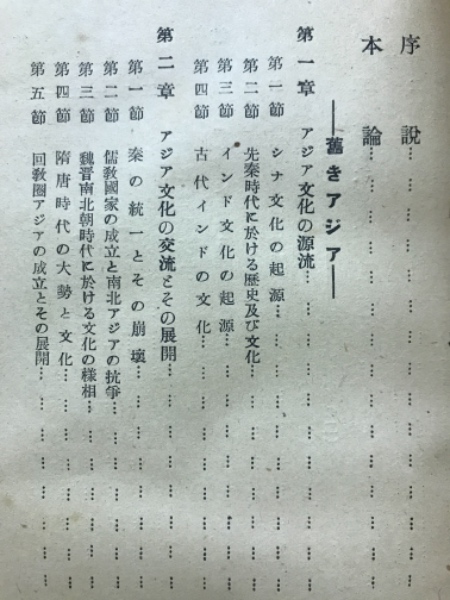 序説………………………………
本論………………………………
――舊きアジア――
第一章 アジア文化の源流………………………………
第一節 シナ文化の起源………………………………
第二節 先秦時代に於ける歷史及び文化………………………………
第三節 インド文化の起源………………………………
第四節 古代インドの文化………………………………
第二章 アジア文化の交流とその展開………………………………
第一節 秦の統一とその崩壞………………………………
第二節 儒敎國家の成立と南北アジアの抗爭………………………………
第三節 魏晋南北朝時代に於ける文化の樣相………………………………
第四節 隋唐時代の大勢と文化………………………………
第五節 回敎圈アジアの成立とその展開………………………………